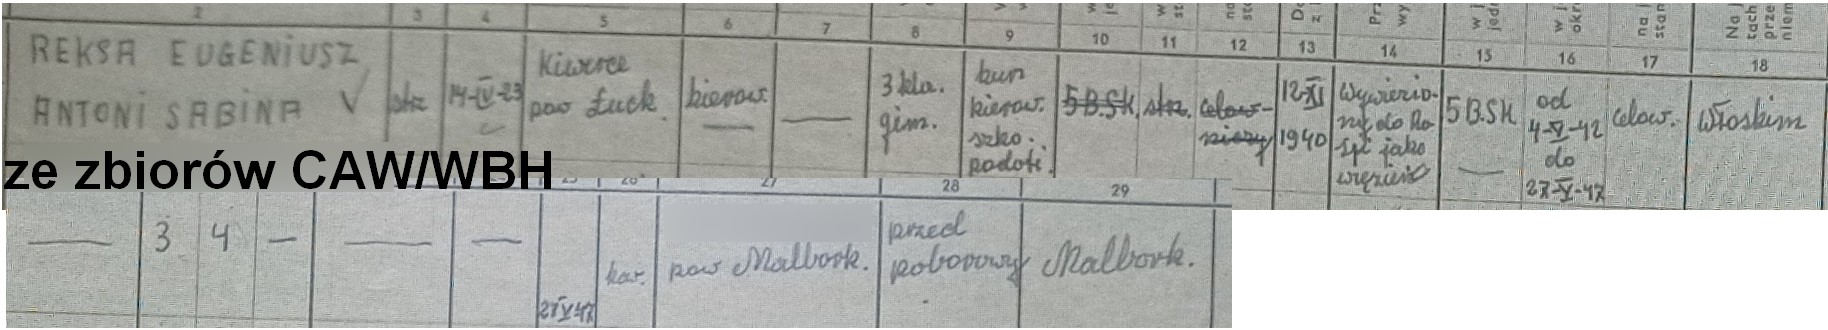 2 3 4 5 6 7 8 9 10 11 12 13 14 15 16 17 18
REKSA EUGENIUSZ
ANTONI SABINA V
strz
14-IV-23
Kiwerce
pow Łuck.
kierow.
3 kla.
gim.
kurs
kierow.
szko.
podofi.
5 B.SK.
strz.
celow-
niczy
12-XI
1940
Wywiezio-
ny do Ro
sji jako
więzień
5 B.SK
od
4-V-42
do
27-V-47
celow.
Włoskim
ze zbiorów CAW/WBH
27 28 29
3 4
27V47
kaw.
pow Malbork.
przed
poborowy
Malbork.